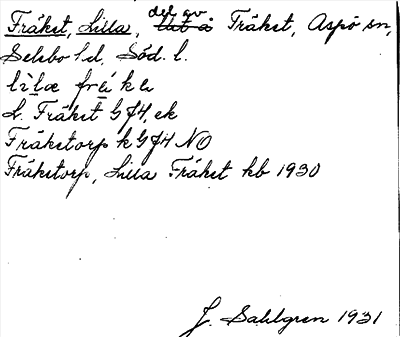 Fräket, Lilla, del av Träket, Aspö sn,
Selebo hd, Söd. l.
lìlæ frǽkæ
L. Fräket GJ4, ek
Fräketorp k GJ4 NO
Fräketorp, Lilla Fräket kb 1930
J. Sahlgren 1931